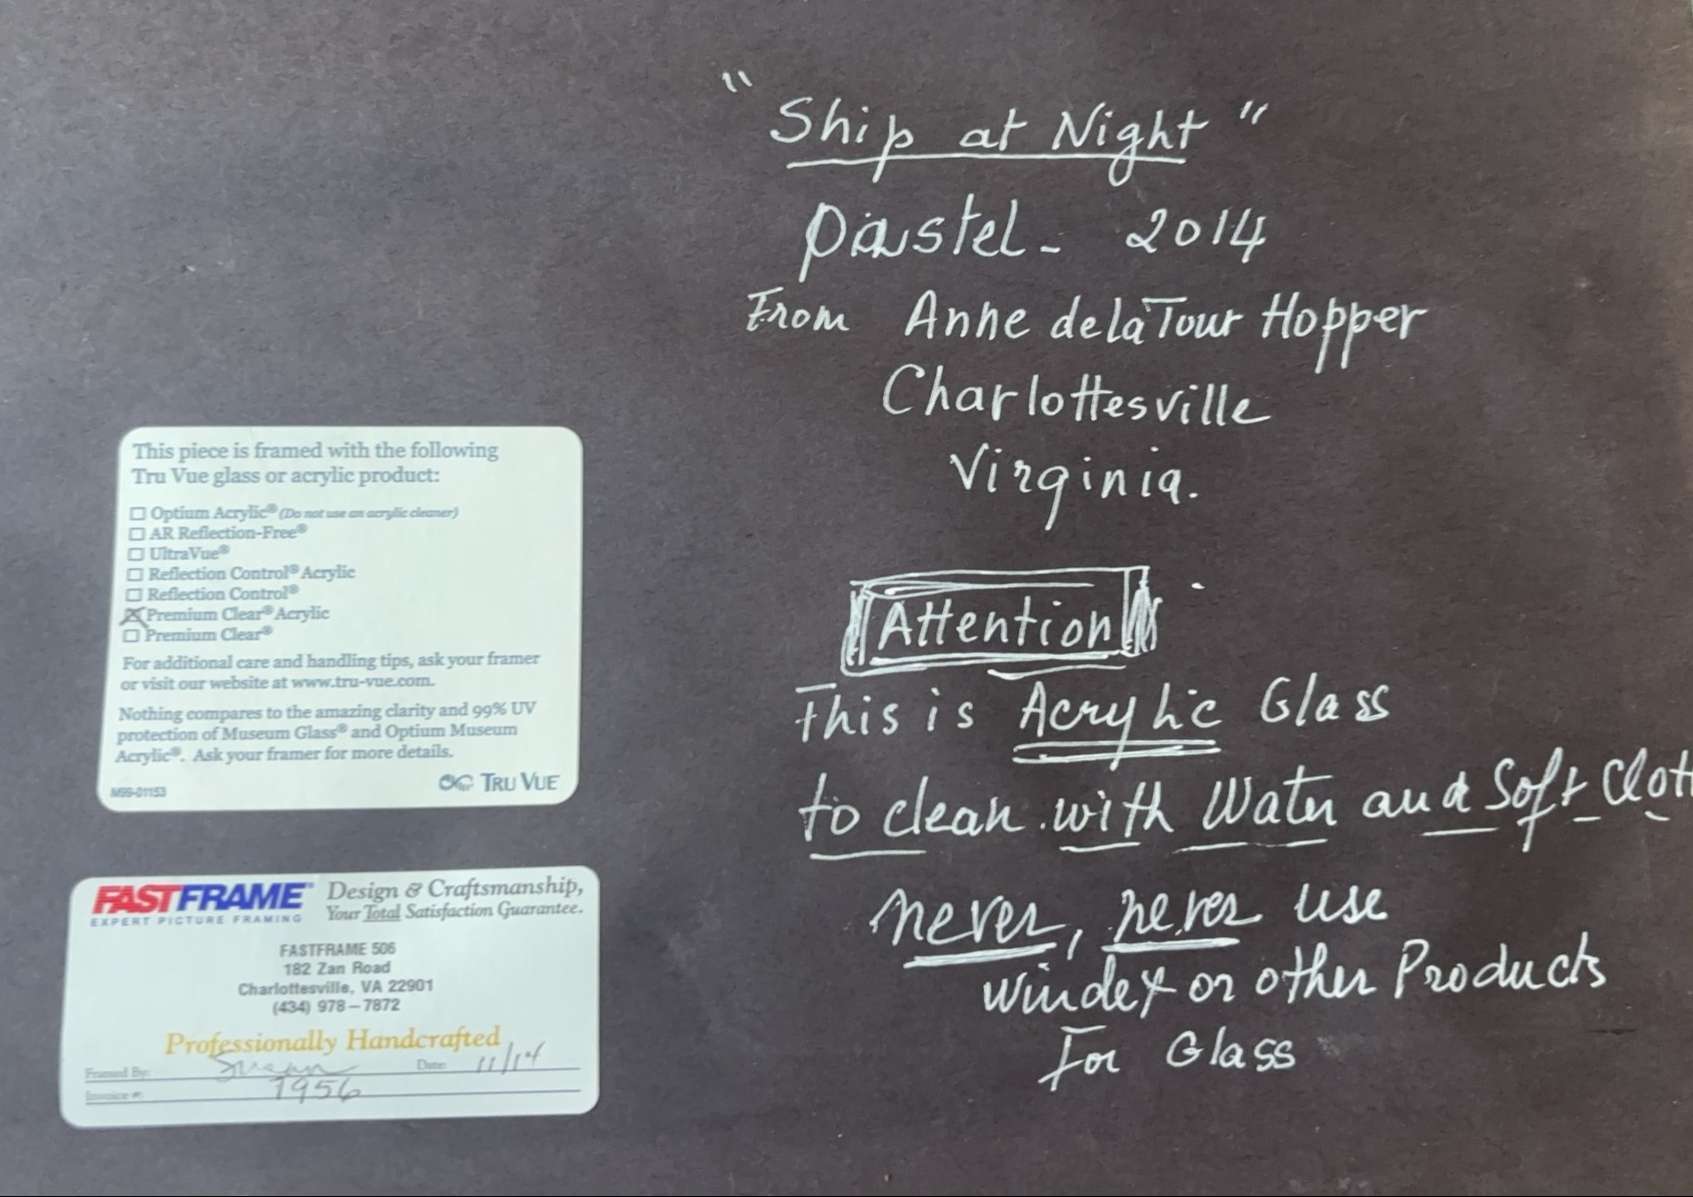 "Ship at Night"
Pastel - 2014
From Anne de la Tour Hopper
Charlottesville
Virginia.
Attention
This is Acrylic Glass
to clean with Water and Soft Clot
never, never use
windex or other Products
For Glass
This piece is framed with the following
Tru Vue glass or acrylic product:
☐ Optium Acrylic® (Do not use an acrylic cleaner)
☐ AR Reflection-Free®
☐ UltraVue®
☐ Reflection Control® Acrylic
☐ Reflection Control®
☒ Premium Clear® Acrylic
☐ Premium Clear®
For additional care and handling tips, ask your framer
or visit our website at www.tru-vue.com.
Nothing compares to the amazing clarity and 99% UV
protection of Museum Glass® and Optium Museum
Acrylic®. Ask your framer for more details.
M99-01153
TRU VUE
FASTFRAME
EXPERT PICTURE FRAMING
Design & Craftsmanship,
Your Total Satisfaction Guarantee.
FASTFRAME 506
182 Zan Road
Charlottesville, VA 22901
(434) 978-7872
Professionally Handcrafted
Framed By: Susan Date: 11/14
Invoice #: 7956